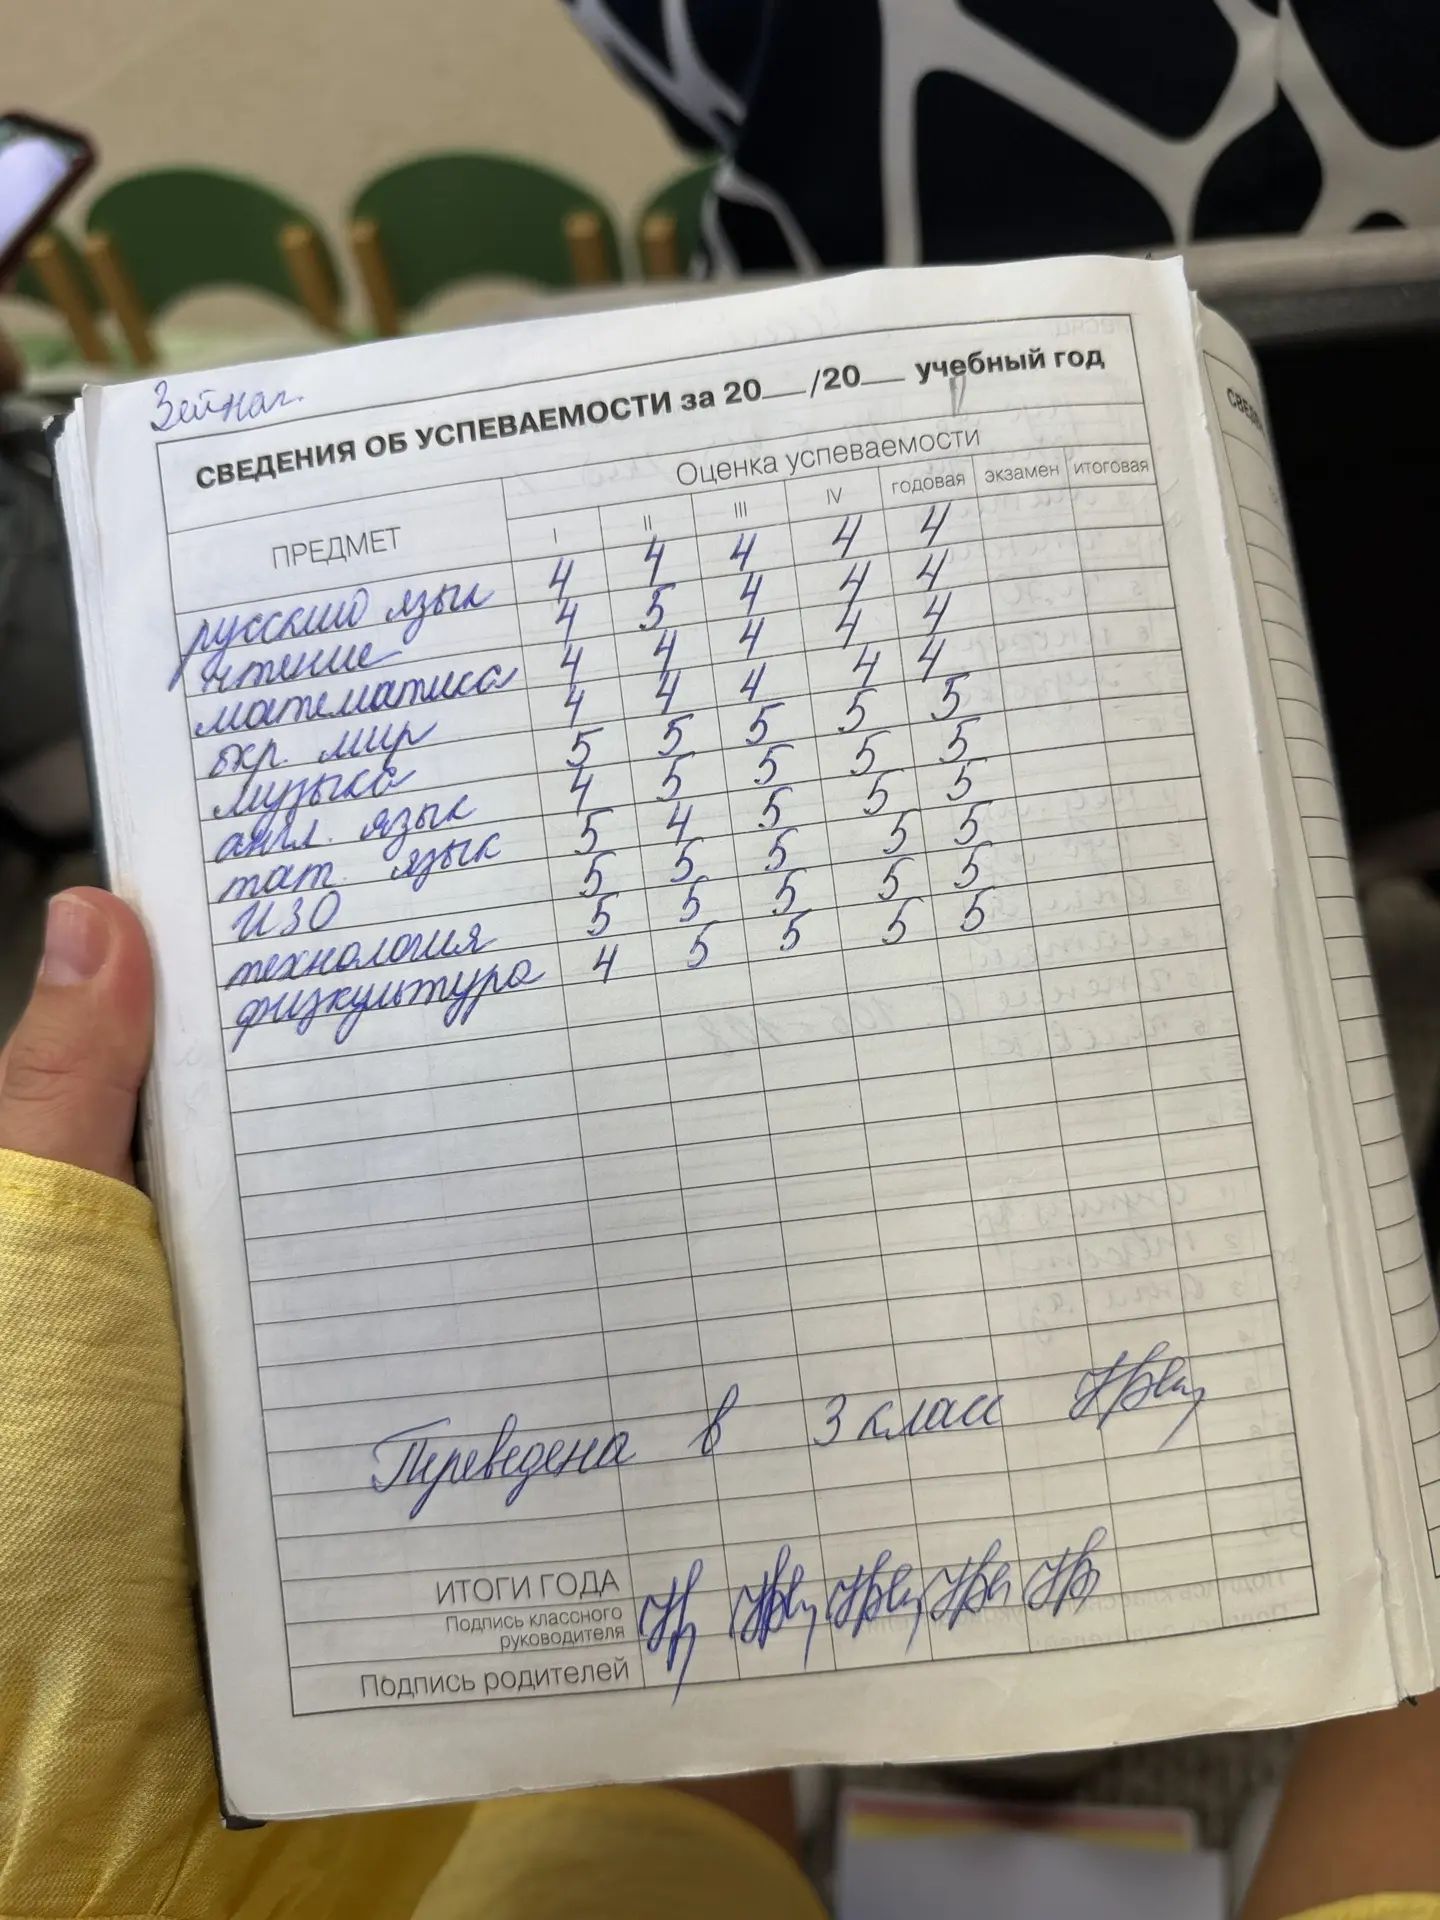 Зейнаг.
СВЕДЕНИЯ ОБ УСПЕВАЕМОСТИ за 20__ /20__ учебный год
ПРЕДМЕТ
Оценка успеваемости
I II III IV годовая экзамен итоговая
русский язык 4 4 4 4 4
чтение 4 5 4 4 4
математика 4 4 4 4 4
окр. мир 4 4 4 4 4
музыка 5 5 5 5 5
англ. язык 4 5 5 5 5
тат. язык 5 4 5 5 5
ИЗО 5 5 5 5 5
технология 5 5 5 5 5
физкультура 4 5 5 5 5
Переведена в 3 класс
ИТОГИ ГОДА
Подпись классного
руководителя
Подпись родителей